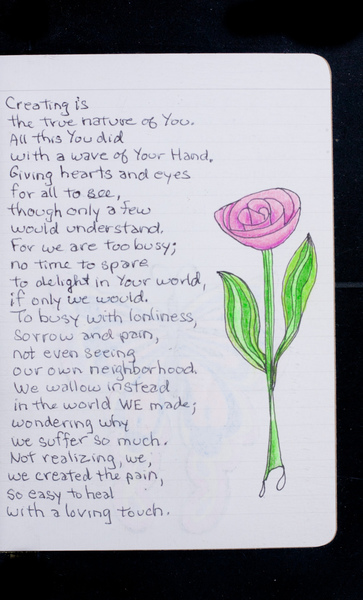 Creating is
the true nature of You.
All this You did
with a wave of Your Hand.
Giving hearts and eyes
for all to see,
though only a few
would understand.
For we are too busy;
no time to spare
to delight in Your world,
if only we would.
To busy with lonliness,
sorrow and pain,
not even seeing
our own neighborhood.
We wallow instead
in the world WE made;
wondering why
we suffer so much.
Not realizing, we,
we created the pain,
so easy to heal
with a loving touch.